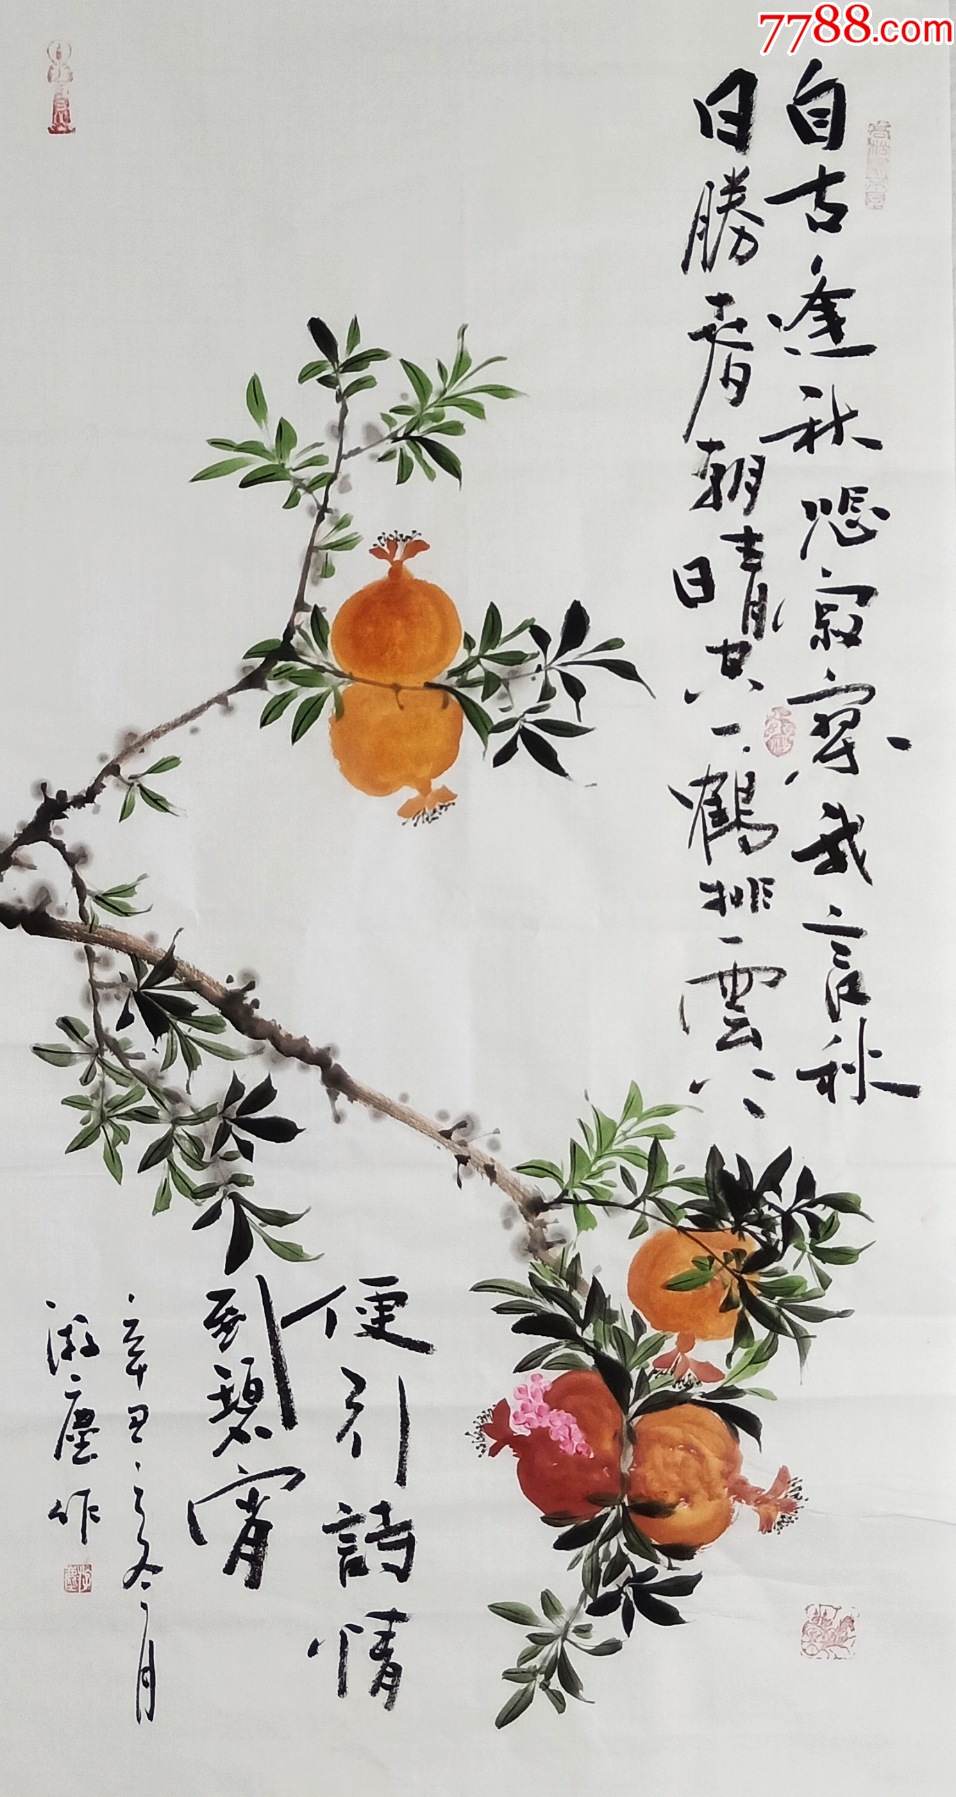 7788.com
自古逢秋悲寂寥我言秋
日勝春朝晴共一鶴排雲
便引詩情
到碧宵
辛丑之冬月
游塵作